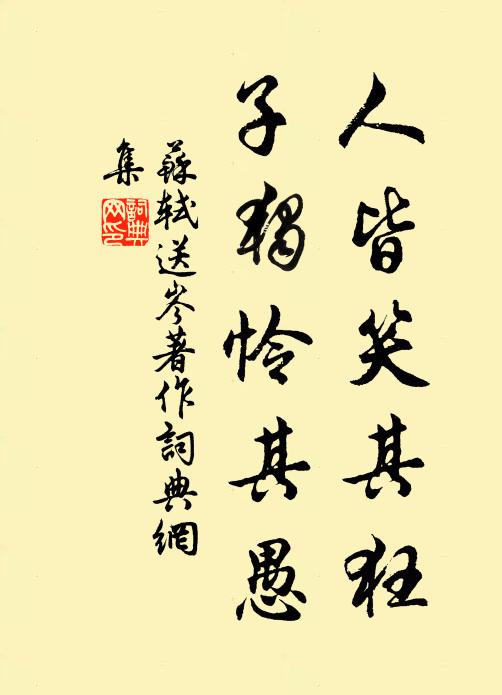 人皆笑其狂
子獨怜其愚
蘇軾送岑著作詞典網
集
詞典
网印